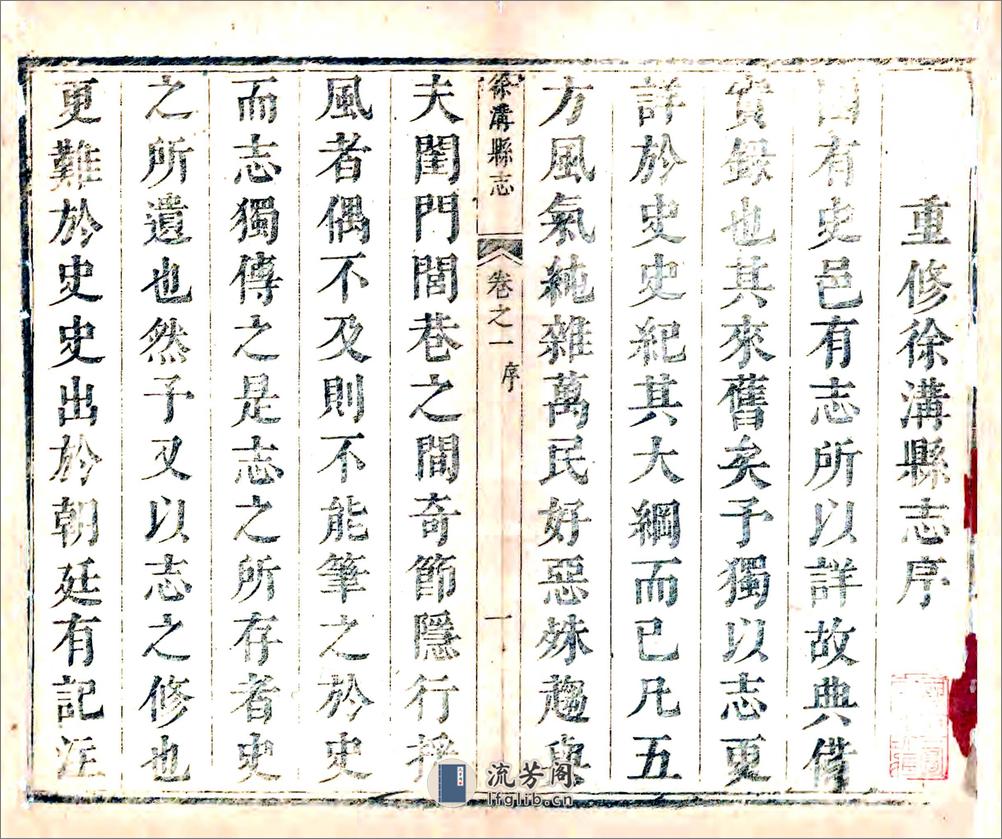 重修徐溝縣志序
國有史邑有志所以詳故典備
實錄也其來舊矣予獨以志更
詳於史史紀其大綱而已凡五
方風氣純雜萬民好惡殊趨與
徐溝縣志
卷之一 序
一
夫閨門閭巷之間奇節隱行採
風者偶不及則不能筆之於史
而志獨傳之是志之所存者史
之所遺也然予又以志之修也
更難於史史出於朝廷有記注
流芳阁
lfglib.cn